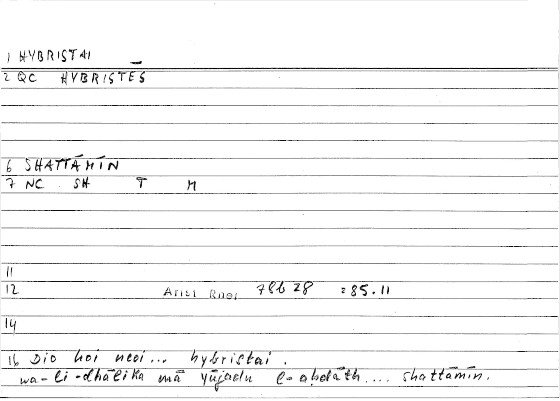 1 HYBRISTAI
2 QC HYBRISTĒS
6 SHATTĀMĪN
7 NC SH T M
11
12 Arist Rhet 78b 28 = 85.11
14
16 Dio hoi neoi... hybristai.
wa-li-dhālika mā yūjadu l-aḥdāth.... shattāmīn.